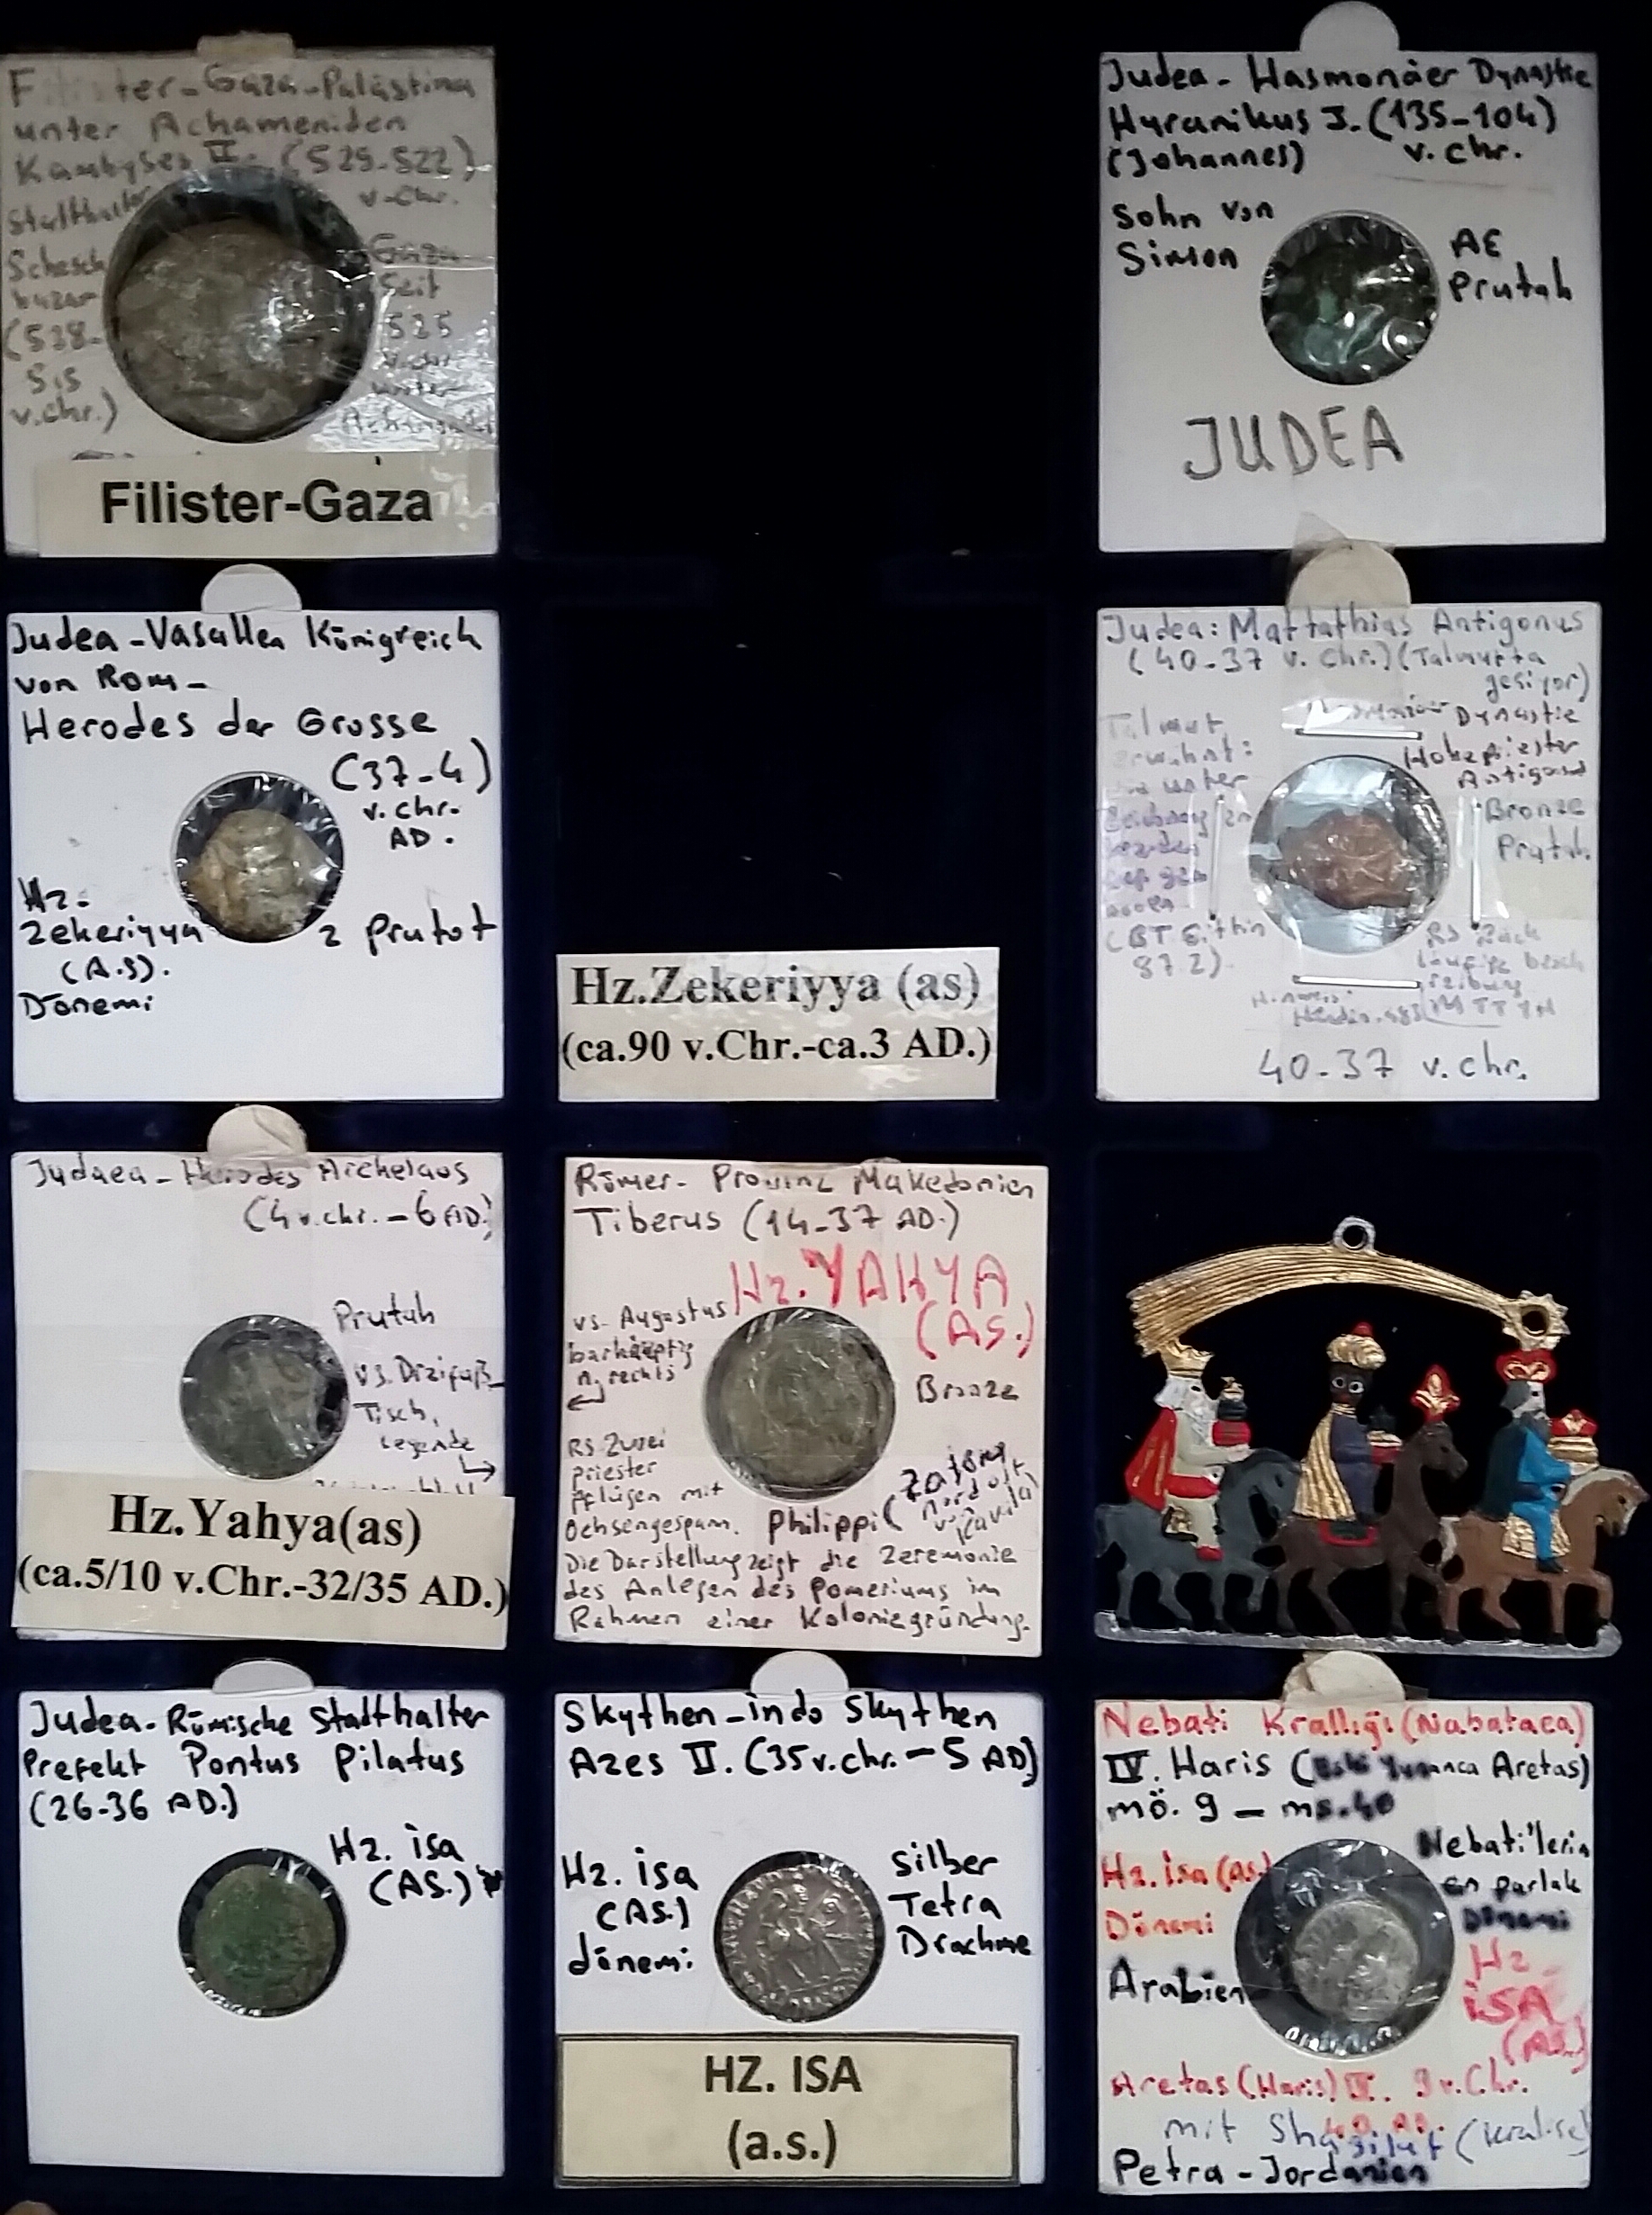 ter-Gaza-Palästina
unter Achameniden
Kambyses II. (525-522)
v.Chr.
Statthalter
Schesch
bazar
(538-
515
v.chr.)
Gaza
Seit
525
v.chr
unter
Filister-Gaza
Judea - Hasmonäer Dynastie
Hyranikus I. (135-104)
(Johannes) v. chr.
Sohn von
Simon
AE
Prutah
JUDEA
Judea-Vasallen Königreich
von Rom-
Herodes der Grosse
(37-4)
v. chr.
AD.
Hz.
Zekeriyya
(A.S).
Dönemi
2 Prutot
Hz.Zekeriyya (as)
(ca.90 v.Chr.-ca.3 AD.)
Judea: Mattathias Antigonus
(40-37 v. Chr.) (Talmutta
gesiyor)
Dynastie
Hohepriester
Bronze
Prutah.
Talmut
erwähnt:
(BT Gittin
87 2)
40-37 v. chr.
Judaea-Herodes Archelaos
(4 v.chr. - 6 AD.)
Prutah
vs. Dreifuß-
Tisch,
Legende
Hz.Yahya(as)
(ca.5/10 v.Chr.-32/35 AD.)
Römer- Provinz Makedonien
Tiberus (14-37 AD.)
Hz. YAHYA
(AS.)
vs. Augustus
barhäuptig
n. rechts
Bronze
RS. Zwei
priester
pflügen mit
Ochsengespann.
Philippi (
nordost
von Kavila)
Die Darstellung zeigt die Zeremonie
des Anlegen des Pomeriums im
Rahmen einer Koloniegründung.
Judea-Römische Stadthalter
Prefekt Pontus Pilatus
(26-36 AD.)
Hz. isa
(AS.)
Skythen-indo Skythen
Azes II. (35 v.chr. - 5 AD)
Hz. isa
(AS.)
dönemi
Silber
Tetra
Drachme
HZ. ISA
(a.s.)
Nebati Krallığı (Nabataea)
IV. Haris (Eski Yunanca Aretas)
mö. 9 - ms. 40
Hz. isa (As.)
Dönemi
Arabien
Nebati'lerin
en parlak
Dönemi
Hz
iSA
(AS.)
Aretas (Haris) IV. 9 v.Chr.
mit
Petra-Jordanien